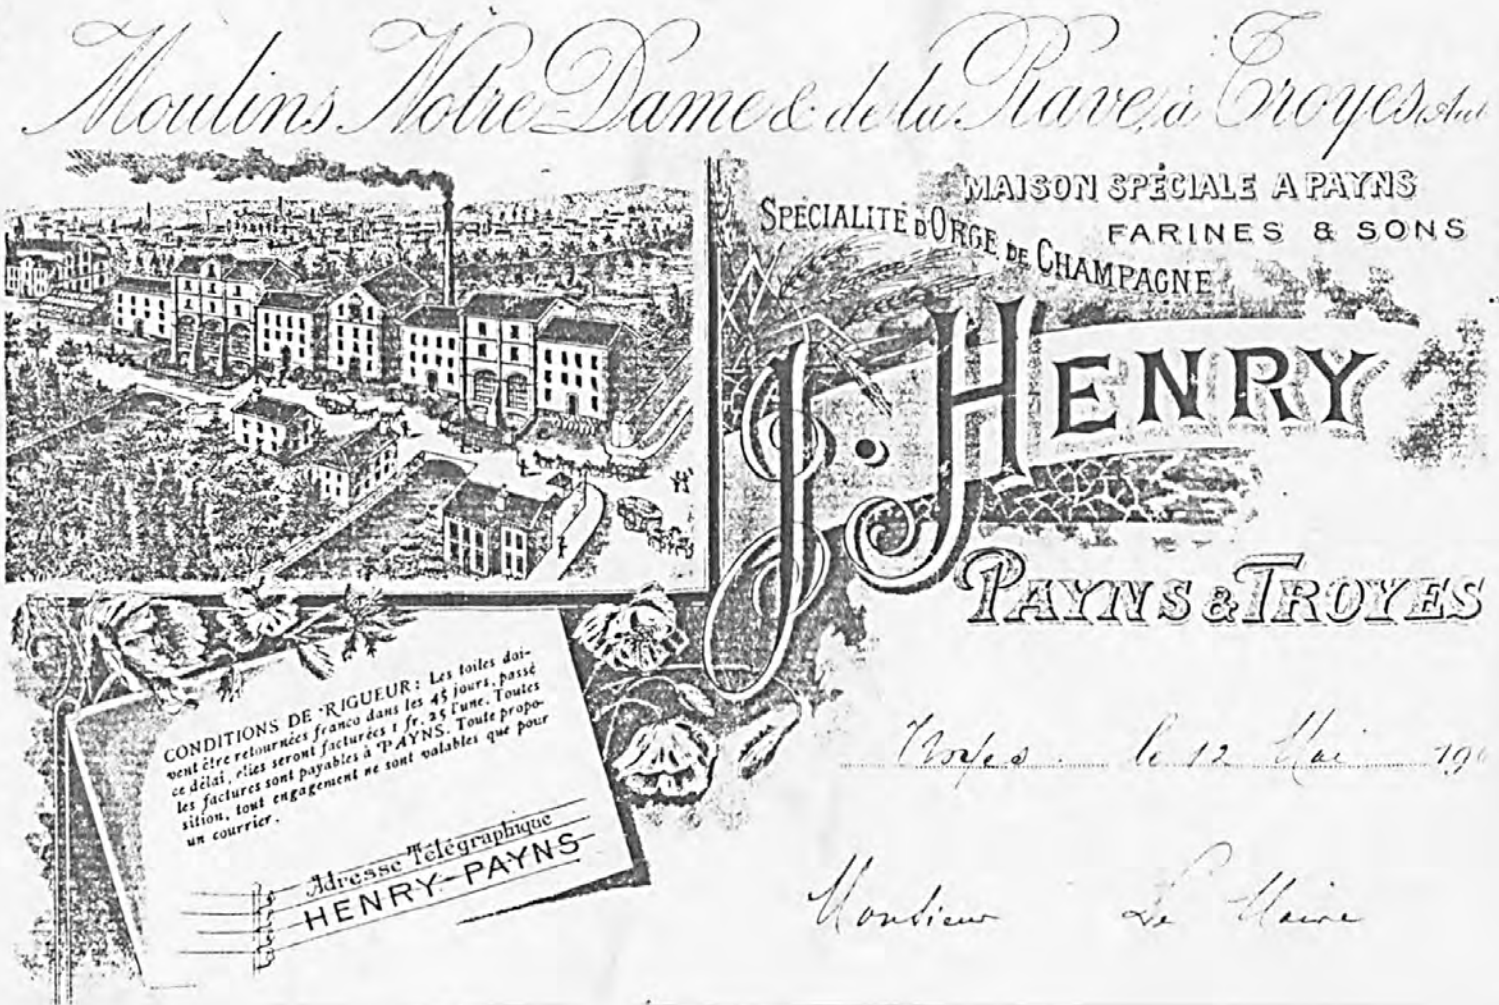 Moulins Notre-Dame & de la Rave, à Troyes
MAISON SPÉCIALE A PAYNS
FARINES & SONS
SPÉCIALITÉ D'ORGE DE CHAMPAGNE
J. HENRY
PAYNS & TROYES
CONDITIONS DE RIGUEUR : Les toiles doi-
vent être retournées franco dans les 45 jours, passé
ce délai, elles seront facturées 1 fr. 25 l'une. Toutes
les factures sont payables à PAYNS. Toute propo-
sition, tout engagement ne sont valables que pour
un courrier.
Adresse Télégraphique
HENRY-PAYNS
Troyes le 12 Mai 19
Monsieur Le Maire